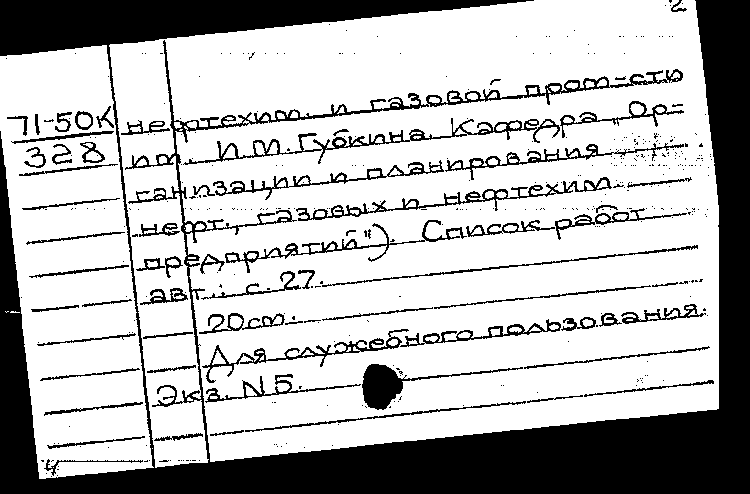 2
71-50К нефтехим. и газовой пром-сти
328 им. И.М.Губкина. Кафедра „Ор=
ганизации и планирования
нефт., газовых и нефтехим.
предприятий"). Список работ
авт.: с. 27.
20см.
Для служебного пользования.
Экз. N5.
4